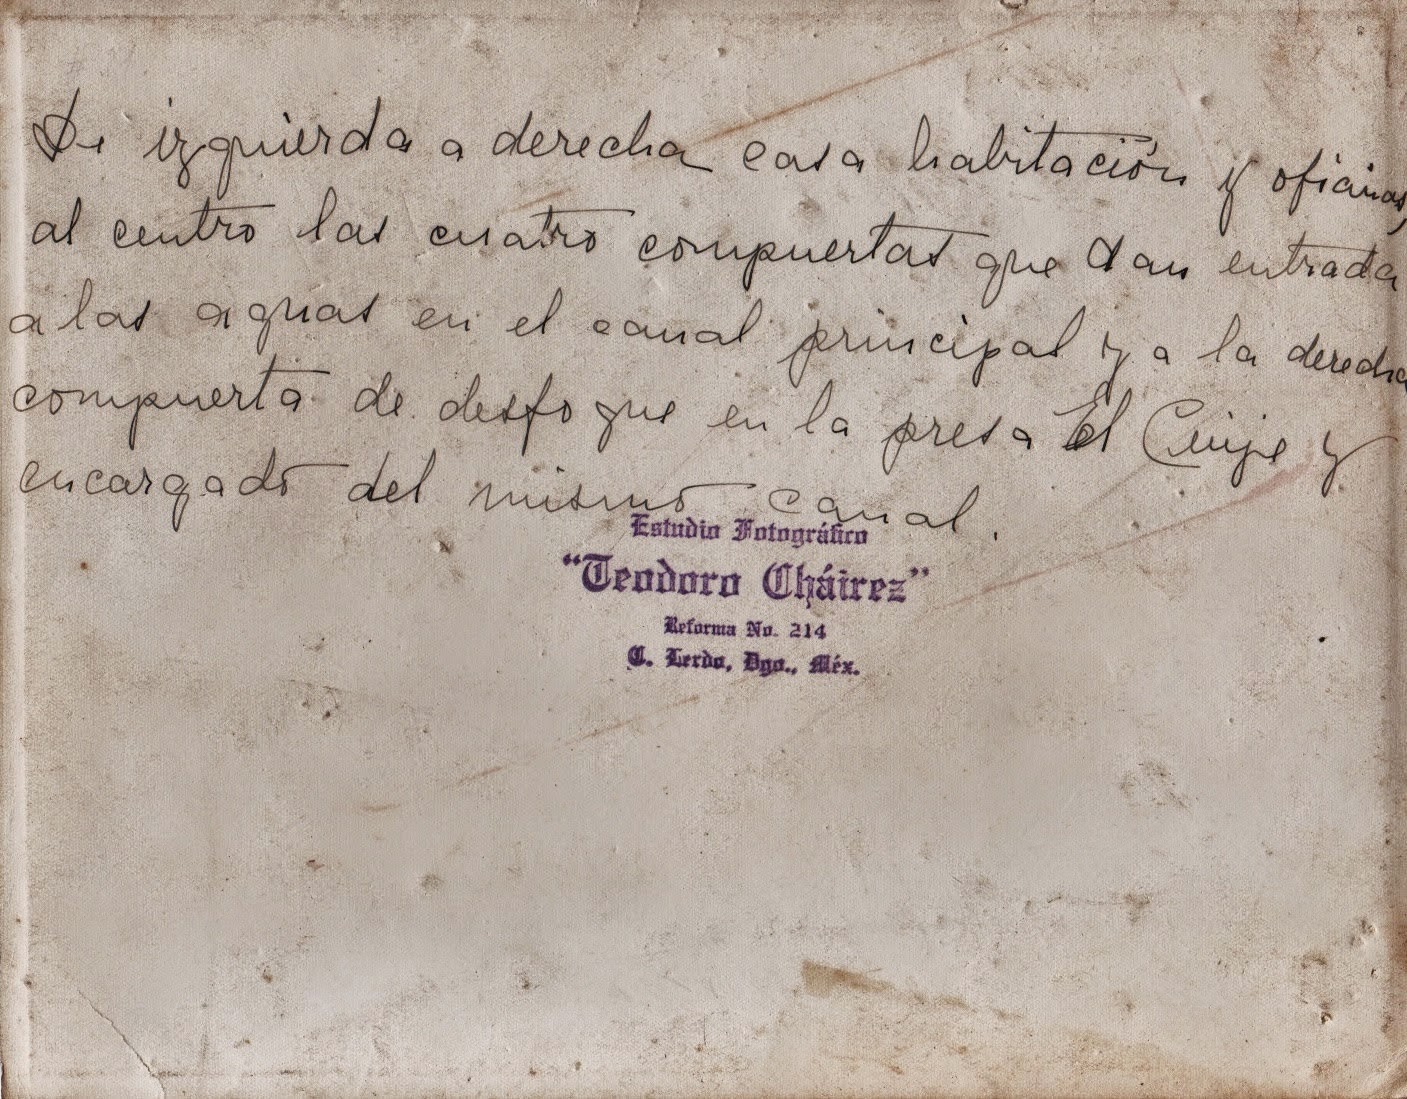 De izquierda a derecha casa habitación y oficinas,
al centro las cuatro compuertas que dan entrada
a las aguas en el canal principal y a la derecha
compuerta de desfogue en la presa El Cuije y
encargado del mismo canal.
Estudio Fotográfico
"Teodoro Cháirez"
Reforma No. 214
C. Lerdo, Dgo., Méx.